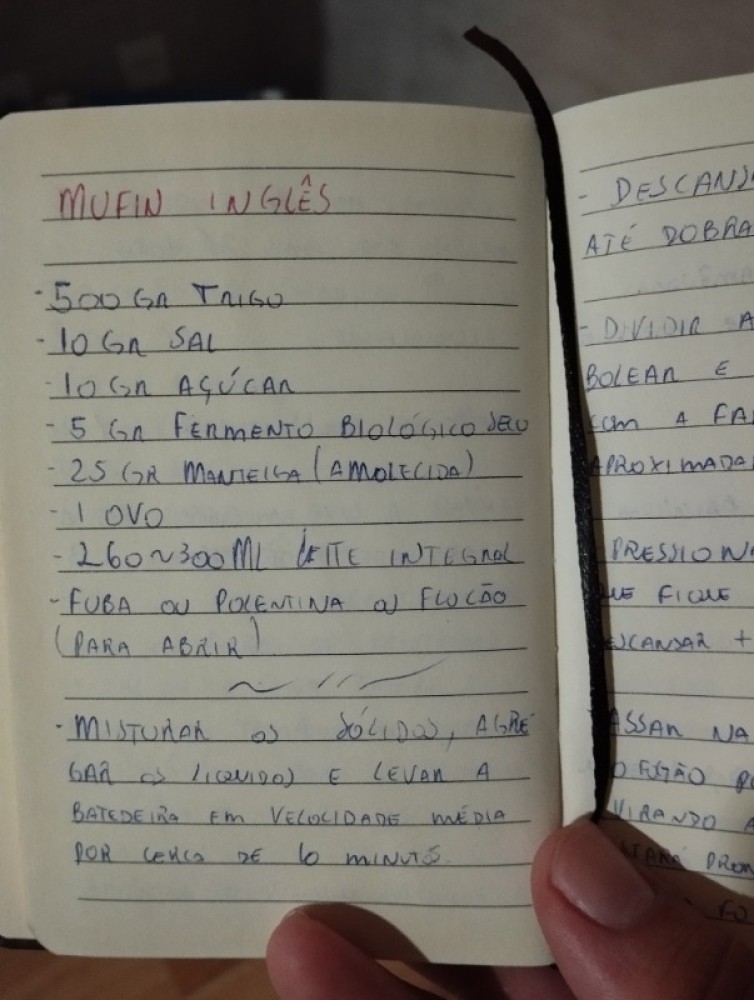 MUFIN INGLÊS
- 500 GR TRIGO
- 10 GR SAL
- 10 GR AÇÚCAR
- 5 GR FERMENTO BIOLÓGICO SECO
- 25 GR MANTEIGA (AMOLECIDA)
- 1 OVO
- 260~300 ML LEITE INTEGRAL
- FUBA OU POLENTINA OU FLOCÃO
(PARA ABRIR)
- MISTURAR OS SÓLIDOS, AGRE
GAR OS LIQUIDOS E LEVAR A
BATEDEIRA EM VELOCIDADE MÉDIA
POR CERCA DE MINUTOS
- DESCANS
ATÉ DOBRA
- DIVIDIR A
BOLEAR E
COM A FA
APROXIMADA
PRESSIONA
UE FIQUE
ESCANSAR +
ASSAR NA
O FOGÃO PO
VIRANDO A
TARÁ PRON
FO